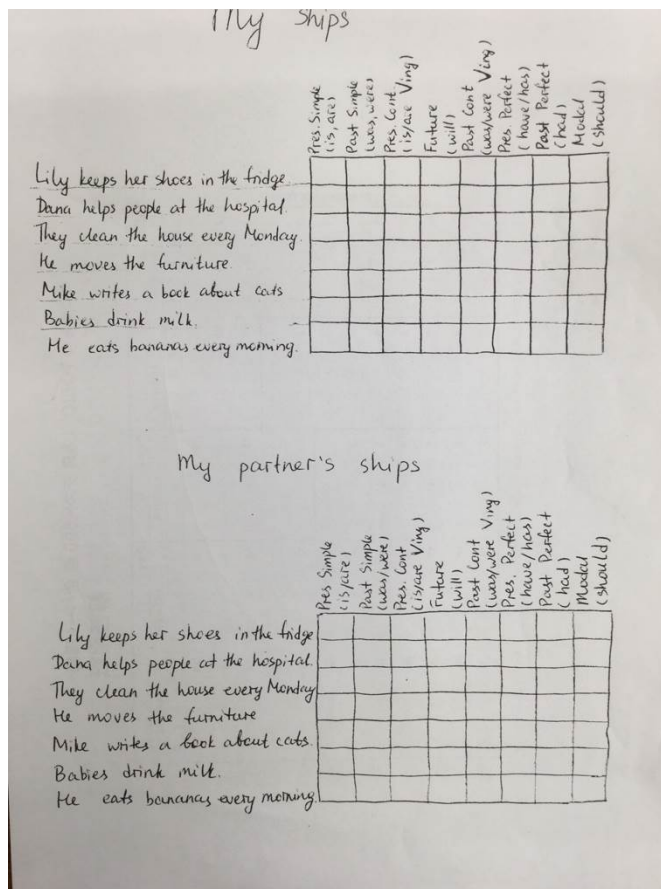 My ships
Pres. Simple
(is, are)
Past Simple
(was, were)
Pres. Cont.
(is/are Ving)
Future
(will)
Past Cont
(was/were Ving)
Pres. Perfect
(have/has)
Past Perfect
(had)
Modal
(should)
Lily keeps her shoes in the fridge
Dana helps people at the hospital.
They clean the house every Monday
He moves the furniture.
Mike writes a book about cats
Babies drink milk.
He eats bananas every morning.
My partner's ships
Pres Simple
(is/are)
Past Simple
(was/were)
Pres. Cont
(is/are Ving)
Future
(will)
Past Cont
(was/were Ving)
Pres. Perfect
(have/has)
Past Perfect
(had)
Modal
(should)
Lily keeps her shoes in the fridge
Dana helps people at the hospital.
They clean the house every Monday
He moves the furniture
Mike writes a book about cats.
Babies drink milk.
He eats bananas every morning.